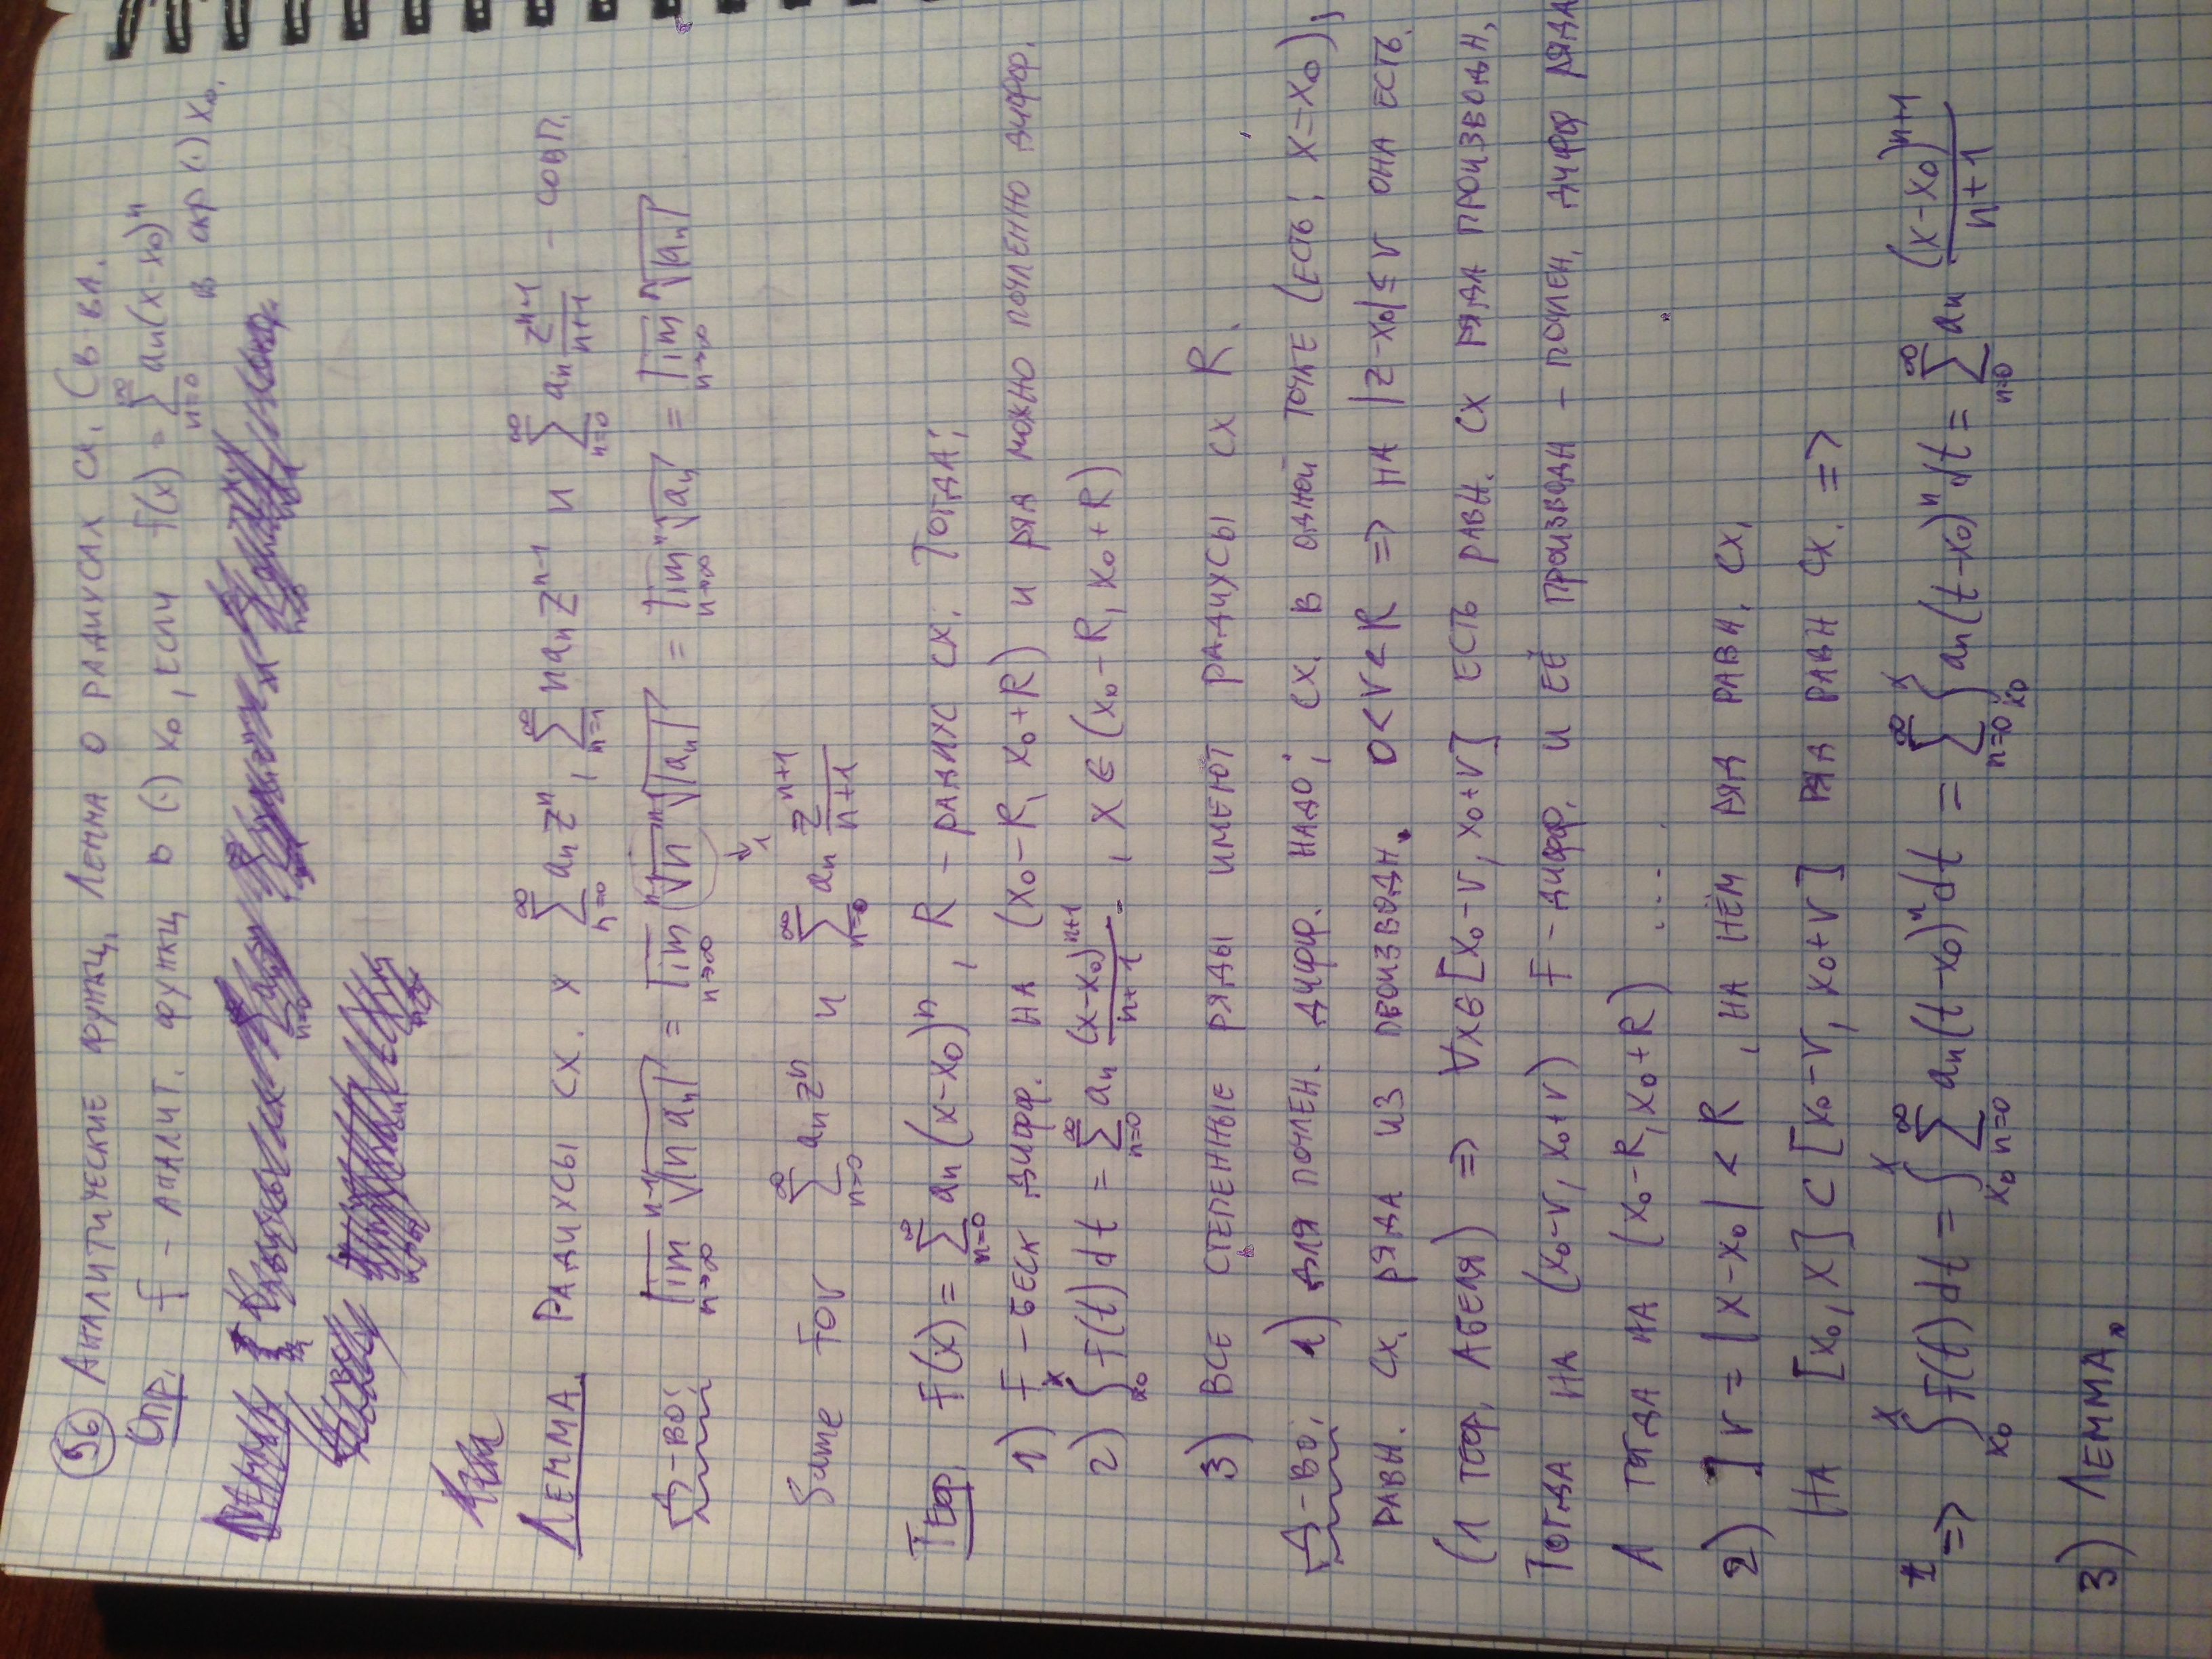 96 Аналитические функц. Лемма о радиусах сх. Св-ва.
Опр. f - аналит. функц в (·) x₀, если f(x) = ∑_{n=0}^{∞} aₙ(x-x₀)ⁿ
в окр (·) x₀.
Лемма. Радиусы сх. у ∑_{n=0}^{∞} aₙzⁿ, ∑_{n=1}^{∞} n aₙ z^{n-1} и ∑_{n=0}^{∞} aₙ z^{n+1}/(n+1) - совп.
Д-во: \overline{lim}_{n→∞} ^{n-1}√|n aₙ| = \overline{lim}_{n→∞} ^{n-1}√n ^{n-1}√|aₙ| = \overline{lim}_{n→∞} ^{n-1}√|aₙ| = \overline{lim}_{n→∞} ⁿ√|aₙ|
↓
1
Same for ∑_{n=0}^{∞} aₙzⁿ и ∑_{n=0}^{∞} aₙ z^{n+1}/(n+1)
Теор. f(x) = ∑_{n=0}^{∞} aₙ(x-x₀)ⁿ, R - радиус сх. Тогда:
1) f - беск дифф. на (x₀-R, x₀+R) и ряд можно почленно дифф.
2) ∫_{x₀}^{x} f(t)dt = ∑_{n=0}^{∞} aₙ (x-x₀)^{n+1}/(n+1), x ∈ (x₀-R, x₀+R)
3) Все степенные ряды имеют радиусы сх R.
Д-во: 1) Для почлен. дифф. надо: сх. в одной точке (есть: x=x₀);
равн. сх. ряда из производн. 0<r<R => на |z-x₀|≤r она есть.
(1 теор. Абеля) => ∀x∈[x₀-r, x₀+r] есть равн. сх ряда производн.
Тогда на (x₀-r, x₀+r) f - дифф. и её производн - почлен. дифф ряда
А тогда на (x₀-R, x₀+R) ....
2) ] r = |x-x₀| < R, на нём ряд равн. сх.
На [x₀, x] ⊂ [x₀-r, x₀+r] ряд равн сх. =>
=> ∫_{x₀}^{x} f(t)dt = ∫_{x₀}^{x} ∑_{n=0}^{∞} aₙ(t-x₀)ⁿdt = ∑_{n=0}^{∞} ∫_{x₀}^{x} aₙ(t-x₀)ⁿdt = ∑_{n=0}^{∞} aₙ (x-x₀)^{n+1}/(n+1)
3) Лемма.